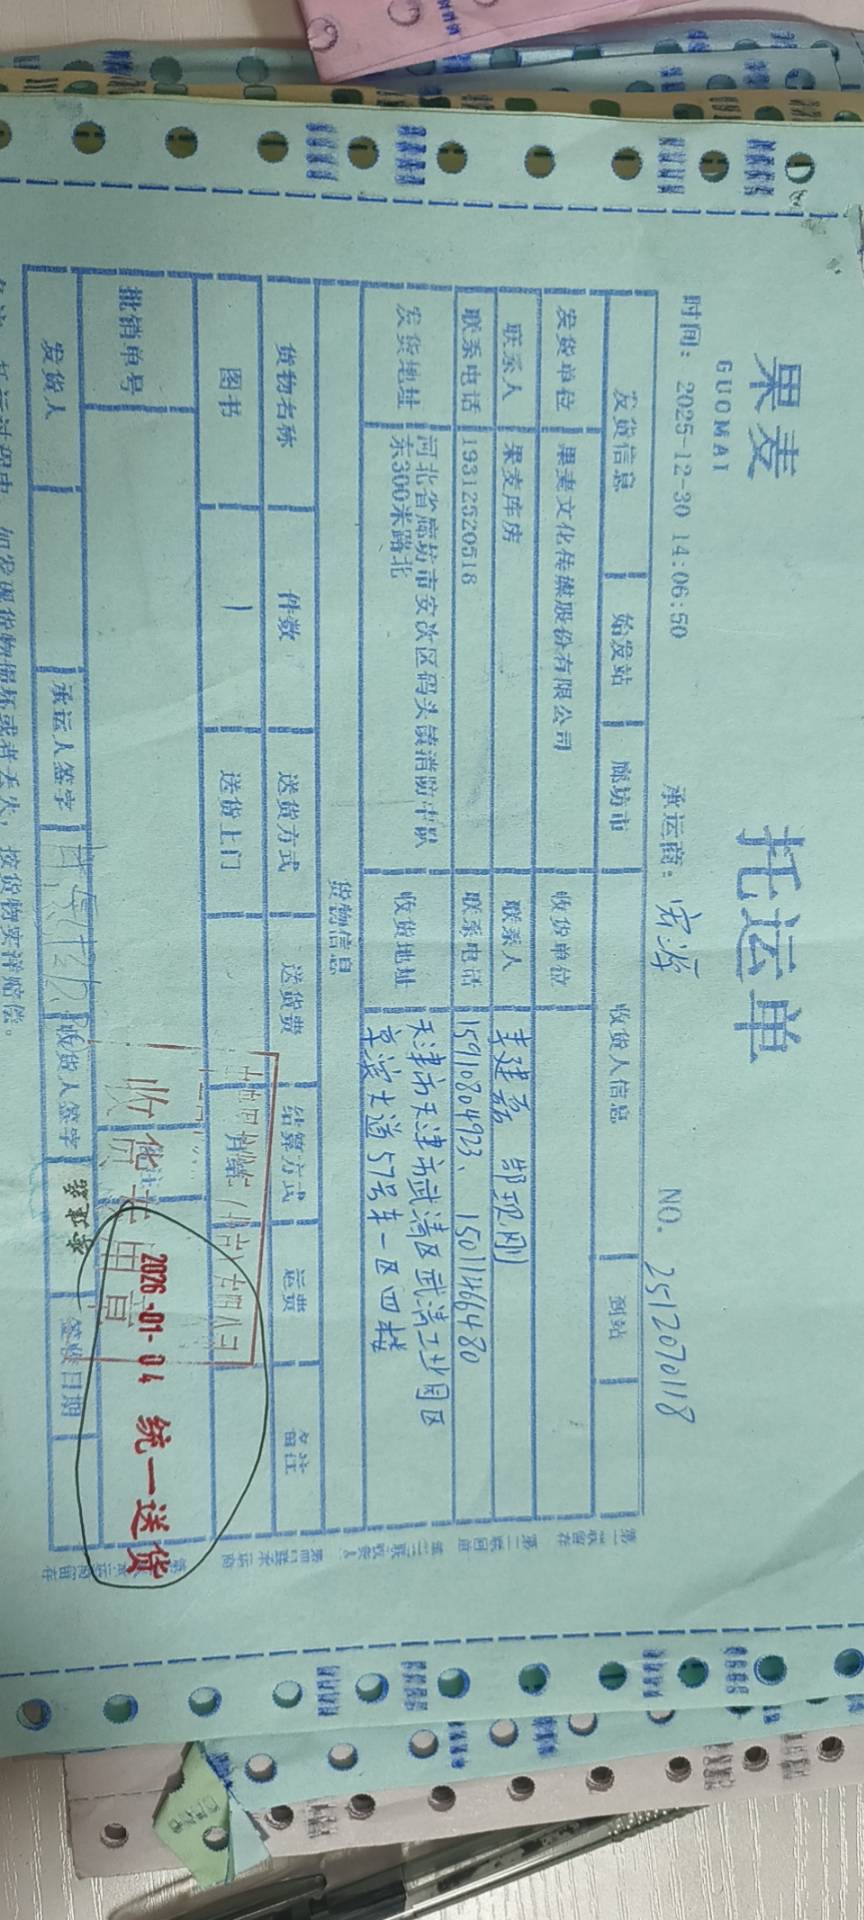 果麦
GUOMAI
托运单
时间: 2025-12-30 14:06:50
承运商:
NO. 2512070118
发货信息 始发站 廊坊市 收货人信息 到站
发货单位 果麦文化传媒股份有限公司 收货单位
联系人 果麦库房 联系人
联系电话 19312520518 联系电话 15910804923、15011466480
发货地址 河北省廊坊市安次区码头镇消防中队东300米路北 收货地址 天津市天津市武清区武清工业园区
京滨大道57号车一区四楼
货物信息
货物名称 件数 送货方式 送货费 结算方式 运费 备注
图书 1 送货上门
批销单号
2026-01-04 统一送货
发货人 承运人签字 收货人签字 签收日期
托运过程中,如发现货物损坏或者丢失,按货物实洋赔偿。